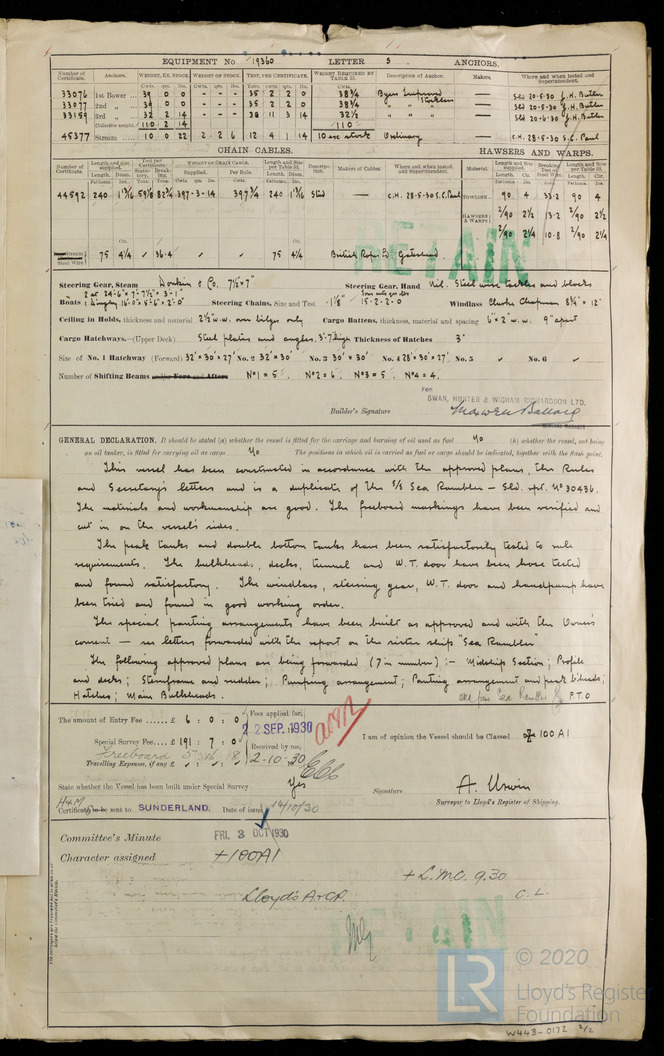 EQUIPMENT No 19360 LETTER S ANCHORS.
Number of Certificate. Anchors. WEIGHT, EX. STOCK WEIGHT OF STOCK. TEST, PER CERTIFICATE. WEIGHT REQUIRED BY TABLE 53. Description of Anchor. Makers. Where and when tested and Superintendent.
Cwts. qrs. lbs. Cwts. qrs. lbs. Tons. cwts. qrs. lbs. Cwts.
33076 1st Bower ... 39 0 0 - - - 35 2 2 0 38¾ Byers Improved — Sld 20-5-30 J.H. Butler
33077 2nd „ ... 39 0 0 - - - 35 2 2 0 38¾ Stockless — Sld 20-5-30 J.H. Butler
33159 3rd „ ... 32 2 14 - - - 30 11 3 14 32½ „ „ „ — Sld 20-6-30 J.H. Butler
Collective weight. 110 2 14 110
45377 Stream ... 10 0 22 2 2 6 12 4 1 14 10 ex stock Ordinary — C.H. 28-5-30 S.C. Paul
CHAIN CABLES. HAWSERS AND WARPS.
Number of Certificate. Length and size supplied. Test per Certificate. WEIGHT OF CHAIN CABLE. Length and Size per Table 53. Description. Makers of Cables. Where and when tested, and Superintendent. Material. Length and Size supplied. Breaking Test of Steel Wire. Length and Size per Table 53.
Length. Diam. Statutory. Breaking. Supplied. Per Rule. Length. Diam. Length. Cir. Length. Cir.
44592 240 1 13/16 59 1/8 82¾ 397-3-14 397¾ 240 1 13/16 Stud — C.H. 28-5-30 S.C. Paul TOWLINE 90 4 33·2 90 4
HAWSERS & WARPS 2/90 2½ 13·2 2/90 2½
2/90 2¼ 10·8 2/90 2¼
Steel Wire 75 4¼ 36·4 75 4¼ British Ropes Ld Gateshead
RETAIN
Steering Gear, Steam Donkin & Co. 7½" × 7" Steering Gear, Hand Nil. Steel wire tackles and blocks
Boats 2 at 24'-6" × 7'-7½" × 3'-1"
1 Dinghy 16'-0" × 5'-6" × 2'-0" Steering Chains, Size and Test 1 1/8" 15-2-2-0 Windlass Clarke Chapman 8¾" × 12"
Ceiling in Holds, thickness and material 2½" w.w. over bilges only Cargo Battens, thickness, material and spacing 6" × 2" w.w. 9" apart
Cargo Hatchways.—(Upper Deck) Steel plates and angles. 3'-7" high Thickness of Hatches 3"
Size of No. 1 Hatchway (Forward) 32' × 30' × 27' No. 2 32' × 30' No. 3 30' × 30' No. 4 28' × 30' × 27' No. 5 No. 6
Number of Shifting Beams and/or Fore and Afters Nº1 = 5 Nº2 = 6 Nº3 = 5 Nº4 = 4.
FOR
SWAN, HUNTER & WIGHAM RICHARDSON LTD.
Builder's Signature
GENERAL DECLARATION. It should be stated (a) whether the vessel is fitted for the carriage and burning of oil used as fuel No (b) whether the vessel, not being
an oil tanker, is fitted for carrying oil as cargo No The positions in which oil is carried as fuel or cargo should be indicated, together with the flash point.
This vessel has been constructed in accordance with the approved plans, the Rules
and Secretary's letters and is a duplicate of the S/S Sea Rambler – Sld. rpt. Nº 30436.
The materials and workmanship are good. The freeboard markings have been verified and
cut in on the vessel's sides.
The peak tanks and double bottom tanks have been satisfactorily tested to rule
requirements. The bulkheads, decks, tunnel and W.T. door have been hose tested
and found satisfactory. The windlass, steering gear, W.T. door and handpump have
been tried and found in good working order.
The special panting arrangements have been built as approved and with the Owner's
consent — see letters forwarded with the report on the sister ship "Sea Rambler"
The following approved plans are being forwarded (7 in number) :- Midship Section; Profile
and decks; Sternframe and rudder; Pumping arrangement; Panting arrangement and peak b'heads;
Hatches; Main Bulkheads. P.T.O
The amount of Entry Fee ...... £ 6 : 0 : 0 Fees applied for,
22 SEP. 1930
Special Survey Fee.... £ 191 : 7 : 0 I am of opinion the Vessel should be Classed 100 A1
Freeboard 5 16 8 Received by me,
Travelling Expenses, if any £ 2-10-30
State whether the Vessel has been built under Special Survey Yes Signature A. Urwin
Surveyor to Lloyd's Register of Shipping.
H&M
Certificate to be sent to SUNDERLAND. Date of issue 14/10/30
Committee's Minute FRI. 3 OCT 1930
Character assigned +100A1
+ L.M.C. 9.30
Lloyd's A&CP. C.L.
RETAIN
© 2020
LR
Lloyd's Register
Foundation
W443-0172 2/2